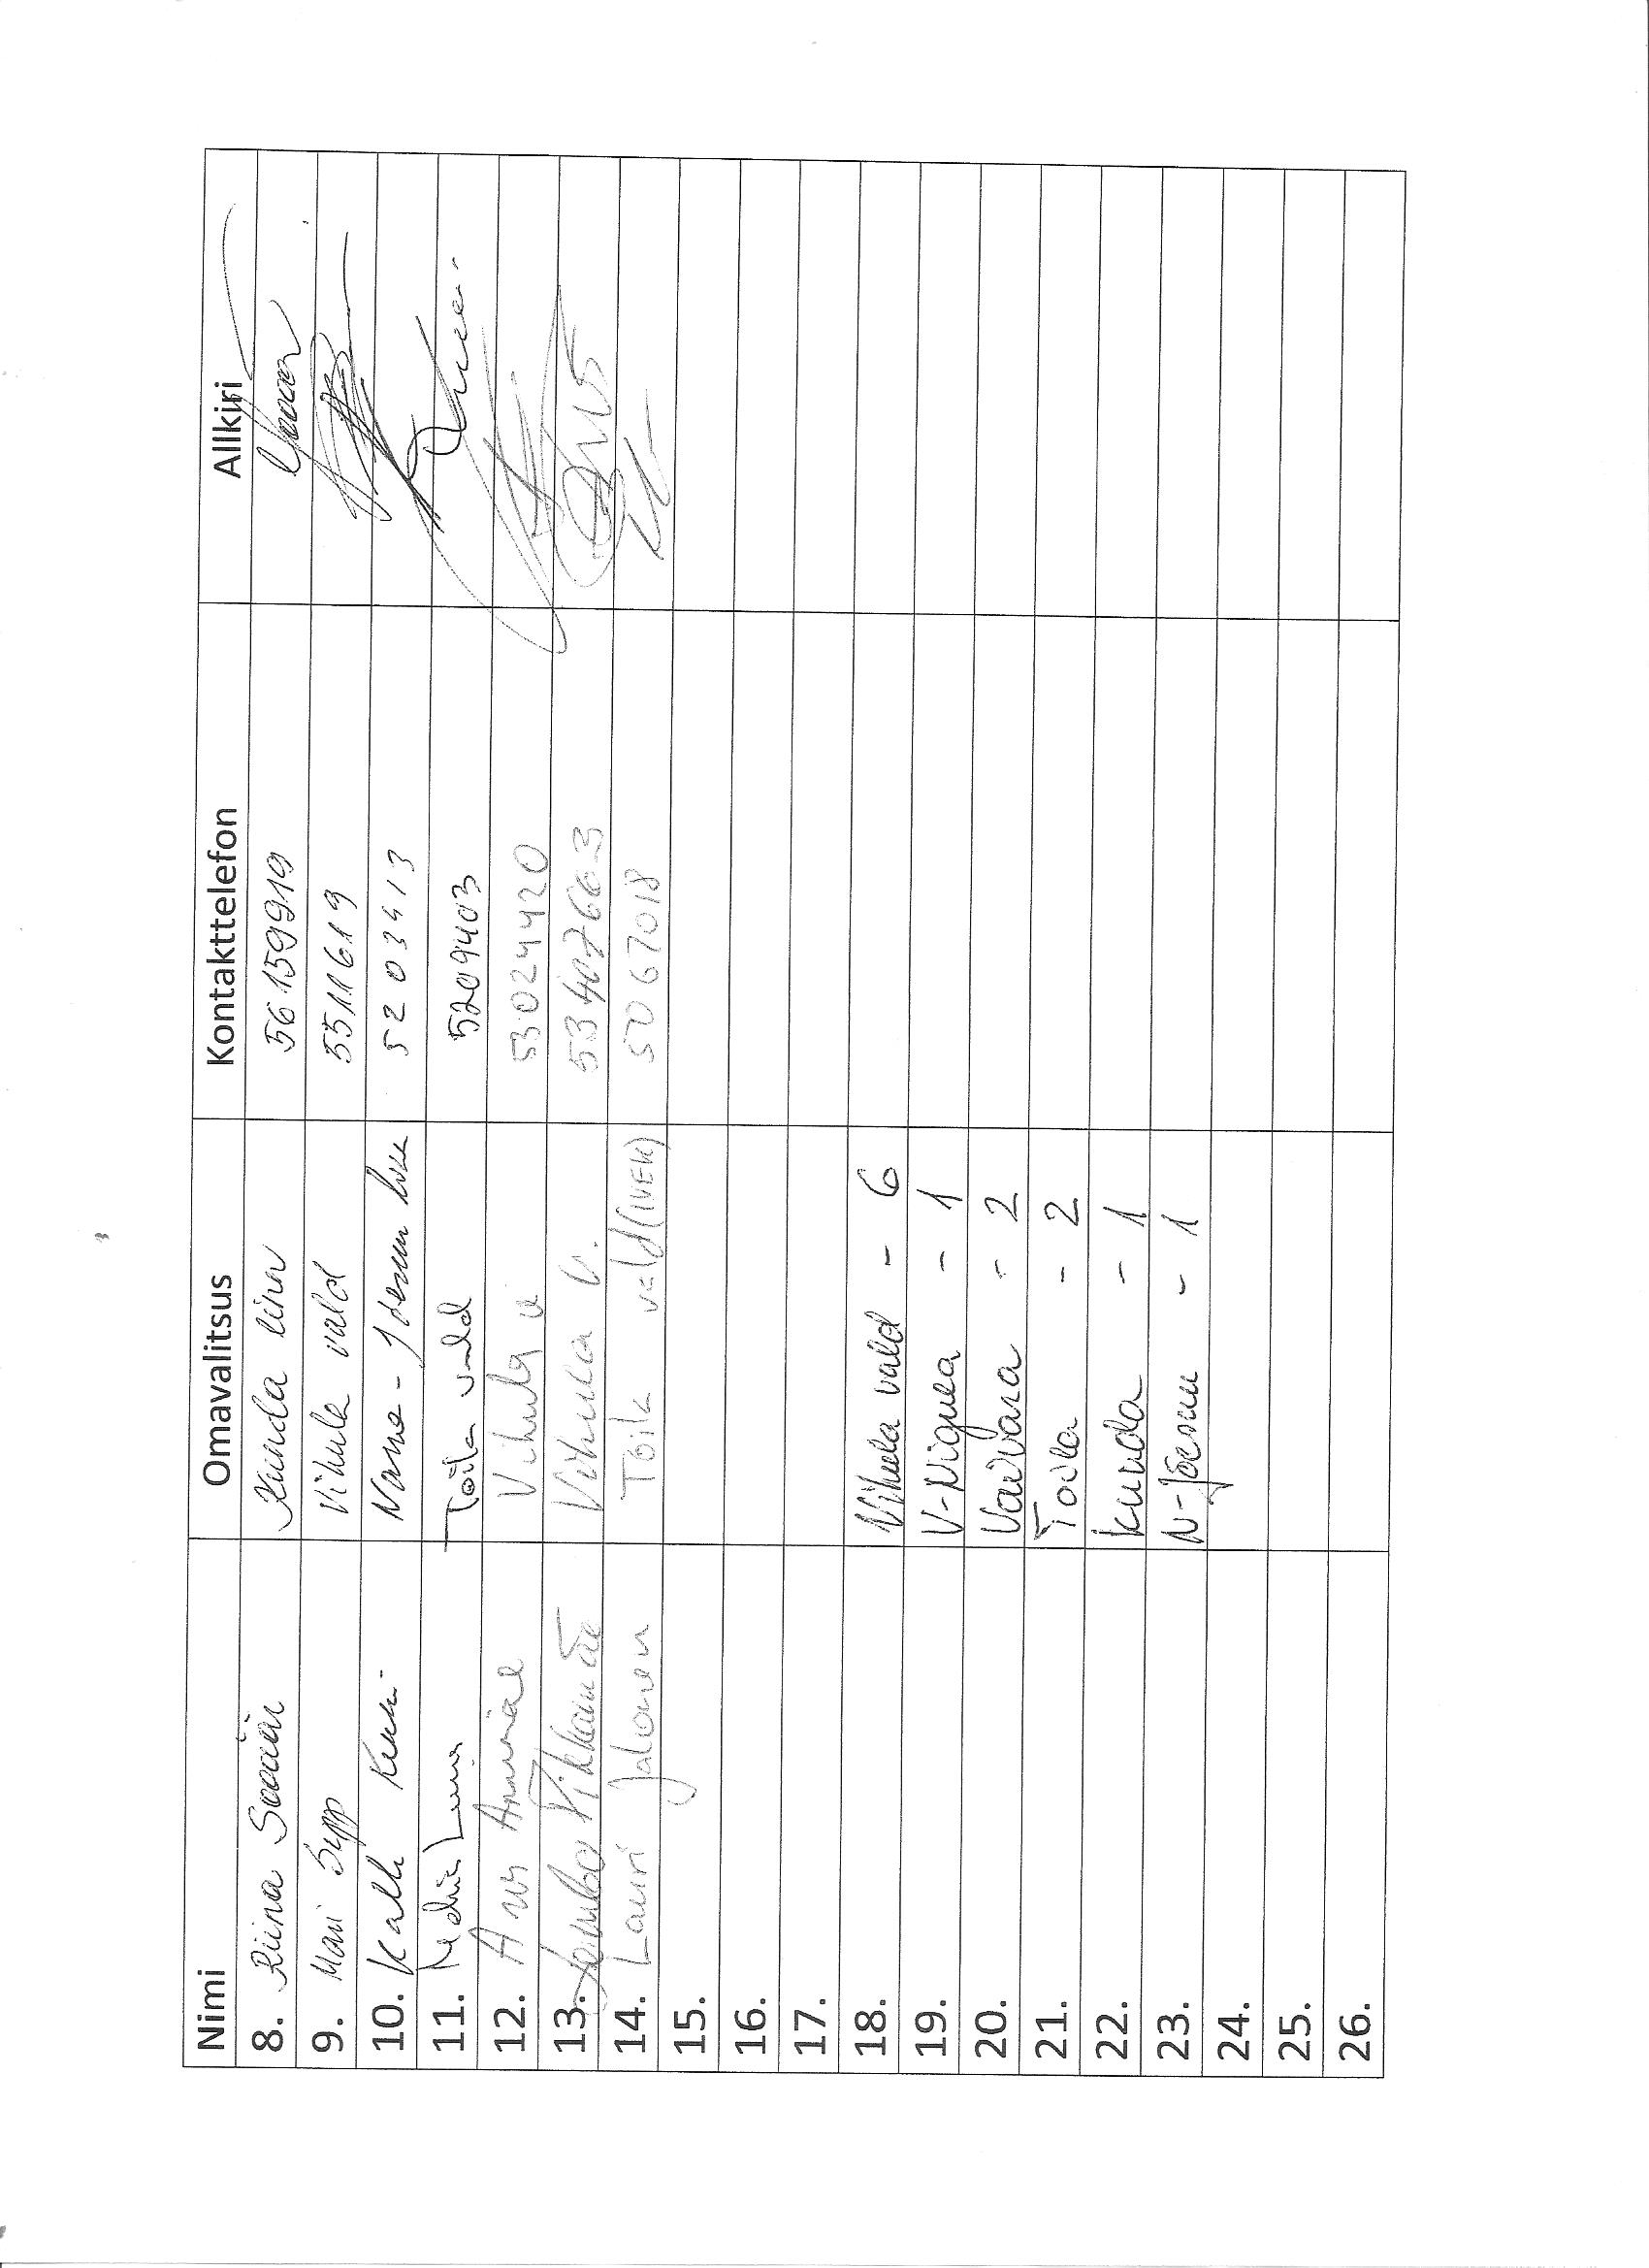 Nimi Omavalitsus Kontakttelefon Allkiri
8. Riina Sooäär Kunda linn 56159919
9. Mari Sepp Vihula vald 5511619
10. Kalle Narva-Jõesuu linn 5203413
11. Toila vald 5209403
12. Annimäe Vihula v 53024420
13. Vihula v. 53407663
14. Lauri Jalonen Toila vald (IVEK) 5067018
15.
16.
17.
18. Vihula vald - 6
19. V-Nigula - 1
20. Vaivara - 2
21. Toila - 2
22. Kunda - 1
23. N-Jõesuu - 1
24.
25.
26.